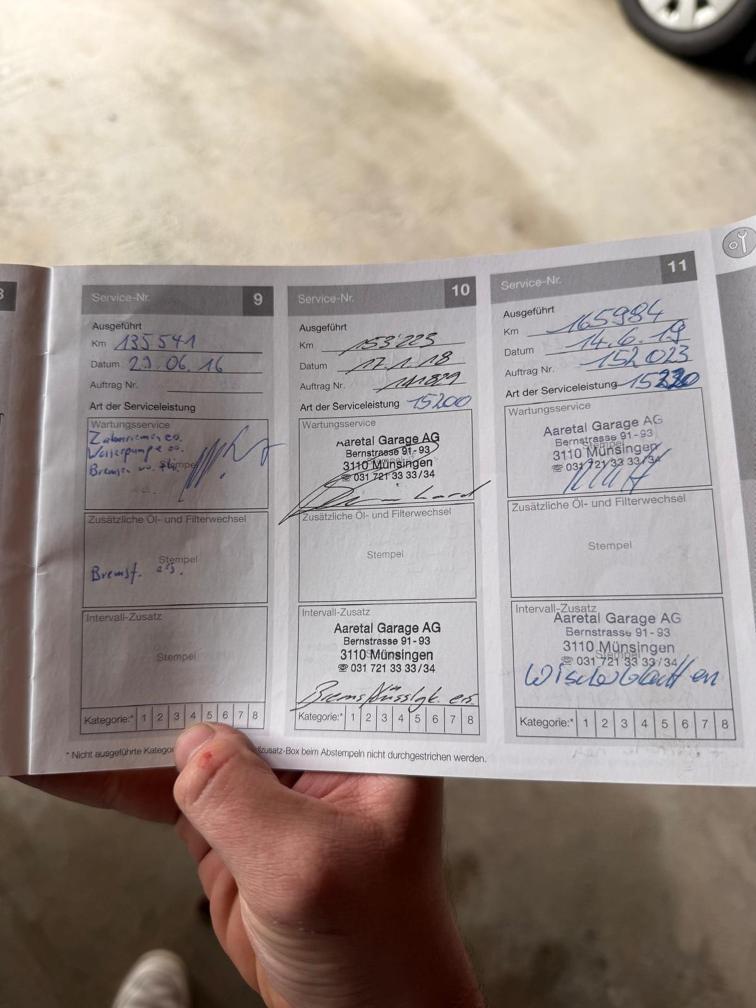 3
Service-Nr. 9
Ausgeführt
Km 135541
Datum 29.06.16
Auftrag Nr.
Art der Serviceleistung
Wartungsservice
Zahnriemen es.
Wasserpumpe es.
Bremsen
Stempel
Zusätzliche Öl- und Filterwechsel
Stempel
Bremsf. es.
Intervall-Zusatz
Stempel
Kategorie:* 1 2 3 4 5 6 7 8
Service-Nr. 10
Ausgeführt
Km 153'225
Datum 17.1.18
Auftrag Nr. 141829
Art der Serviceleistung 15200
Wartungsservice
Aaretal Garage AG
Bernstrasse 91-93
3110 Münsingen
☎ 031 721 33 33/34
Zusätzliche Öl- und Filterwechsel
Stempel
Intervall-Zusatz
Aaretal Garage AG
Bernstrasse 91-93
3110 Münsingen
☎ 031 721 33 33/34
Bremsflüsslgk. ers.
Kategorie:* 1 2 3 4 5 6 7 8
Service-Nr. 11
Ausgeführt
Km 165984
Datum 14.6.19
Auftrag Nr. 152023
Art der Serviceleistung 15230
Wartungsservice
Aaretal Garage AG
Bernstrasse 91-93
3110 Münsingen
☎ 031 721 33 33/34
Zusätzliche Öl- und Filterwechsel
Stempel
Intervall-Zusatz
Aaretal Garage AG
Bernstrasse 91-93
3110 Münsingen
☎ 031 721 33 33/34
Wischerblatt en
Kategorie:* 1 2 3 4 5 6 7 8
* Nicht ausgeführte Katego zusatz-Box beim Abstempeln nicht durchgestrichen werden.